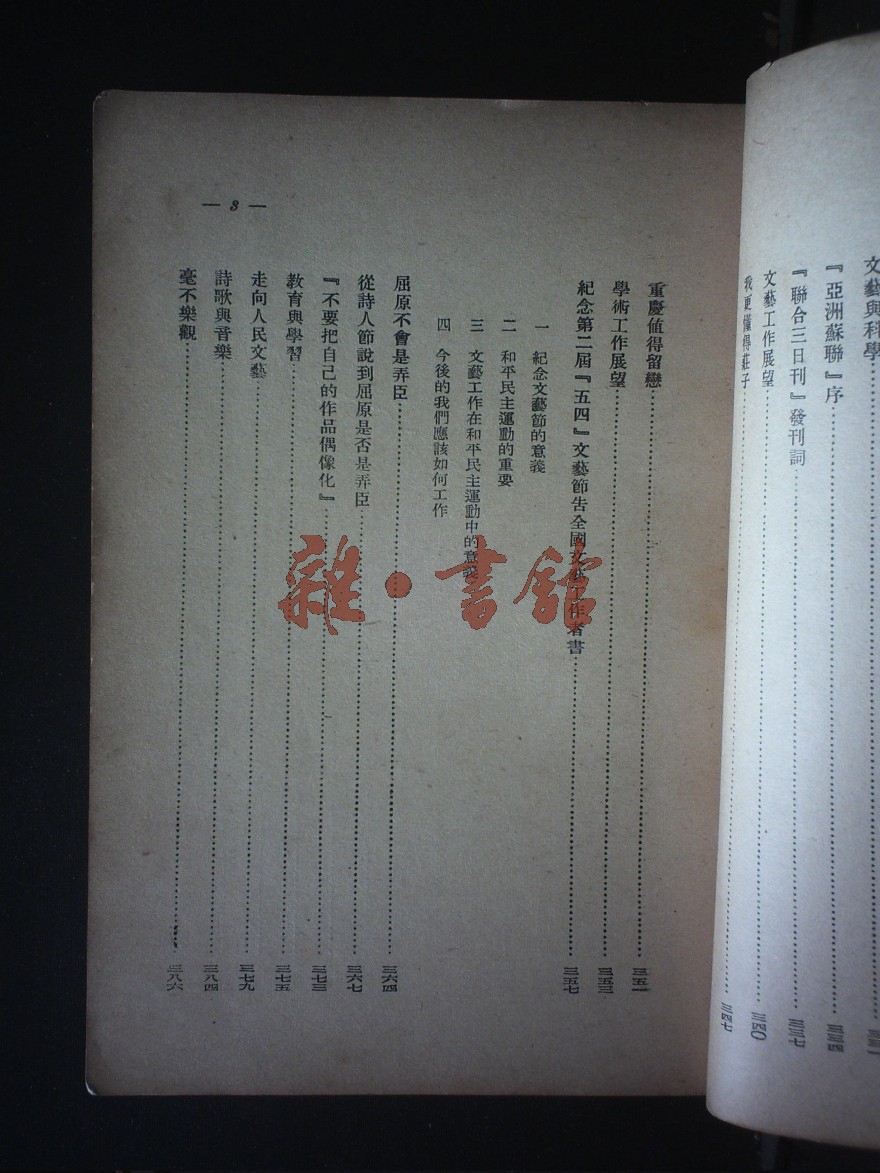 文藝與科學
『亞洲蘇聯』序 三三四
『聯合三日刊』發刊詞 三三七
文藝工作展望 三四〇
我更懂得莊子 三四七
— 3 —
重慶値得留戀 三五一
學術工作展望 三五三
紀念第二屆『五四』文藝節吿全國文藝工作者書 三五七
一 紀念文藝節的意義
二 和平民主運動的重要
三 文藝工作在和平民主運動中的意義
四 今後的我們應該如何工作
屈原不會是弄臣 三六四
從詩人節說到屈原是否是弄臣 三六七
『不要把自己的作品偶像化』 三七三
敎育與學習 三七五
走向人民文藝 三七九
詩歌與音樂 三八四
毫不樂觀 三八六
雜·書館